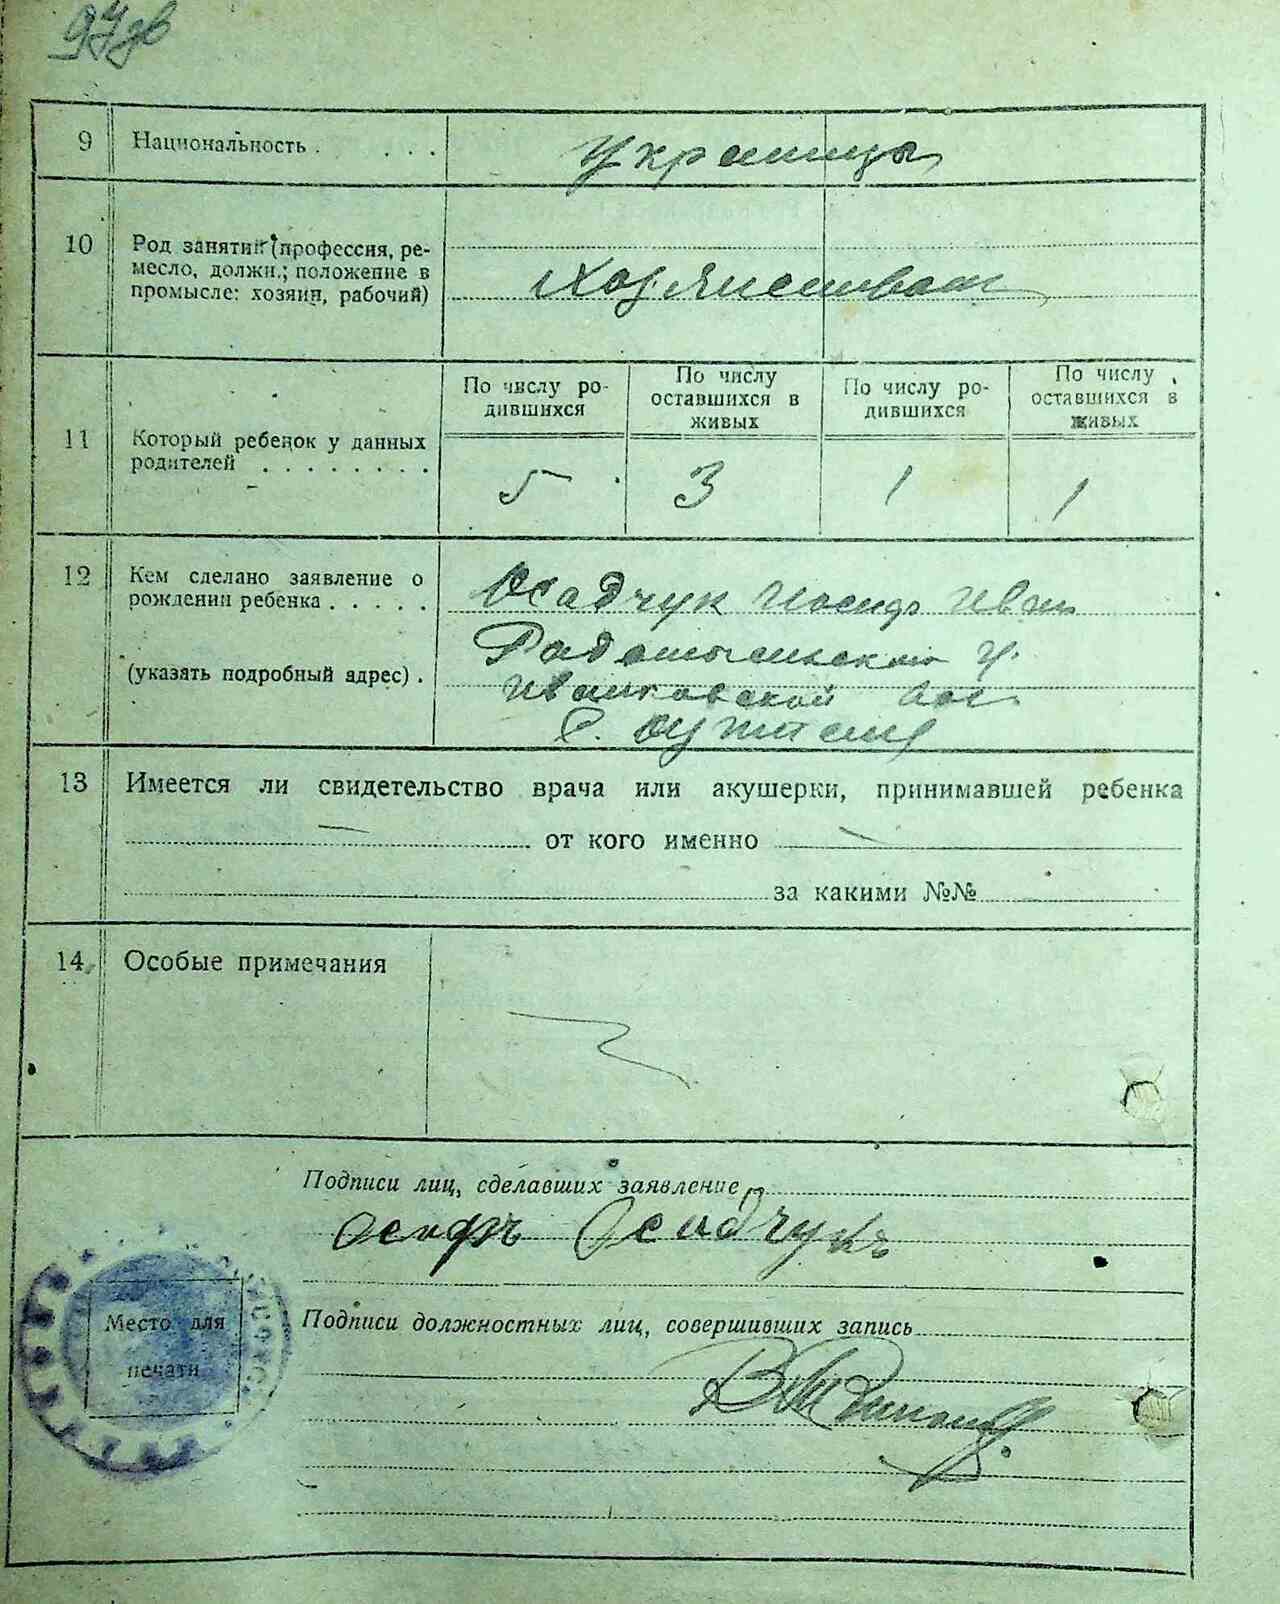 9 Национальность . . . . украинцы
10 Род занятий (профессия, ре-
месло, должн.; положение в
промысле: хозяин, рабочий)
По числу ро-
дившихся
По числу
оставшихся в
живых
По числу ро-
дившихся
По числу
оставшихся в
живых
11 Который ребенок у данных
родителей . . . . . . . .
5 3 1 1
12 Кем сделано заявление о
рождении ребенка . . . . .
(указать подробный адрес) .
Осадчук Иосиф Иван
Радомысльского у.
Иванковской вол.
13 Имеется ли свидетельство врача или акушерки, принимавшей ребенка
от кого именно
за какими №№
14 Особые примечания
Подписи лиц, сделавших заявление
Осифъ Осадчукъ
Место для
печати
Подписи должностных лиц, совершивших запись